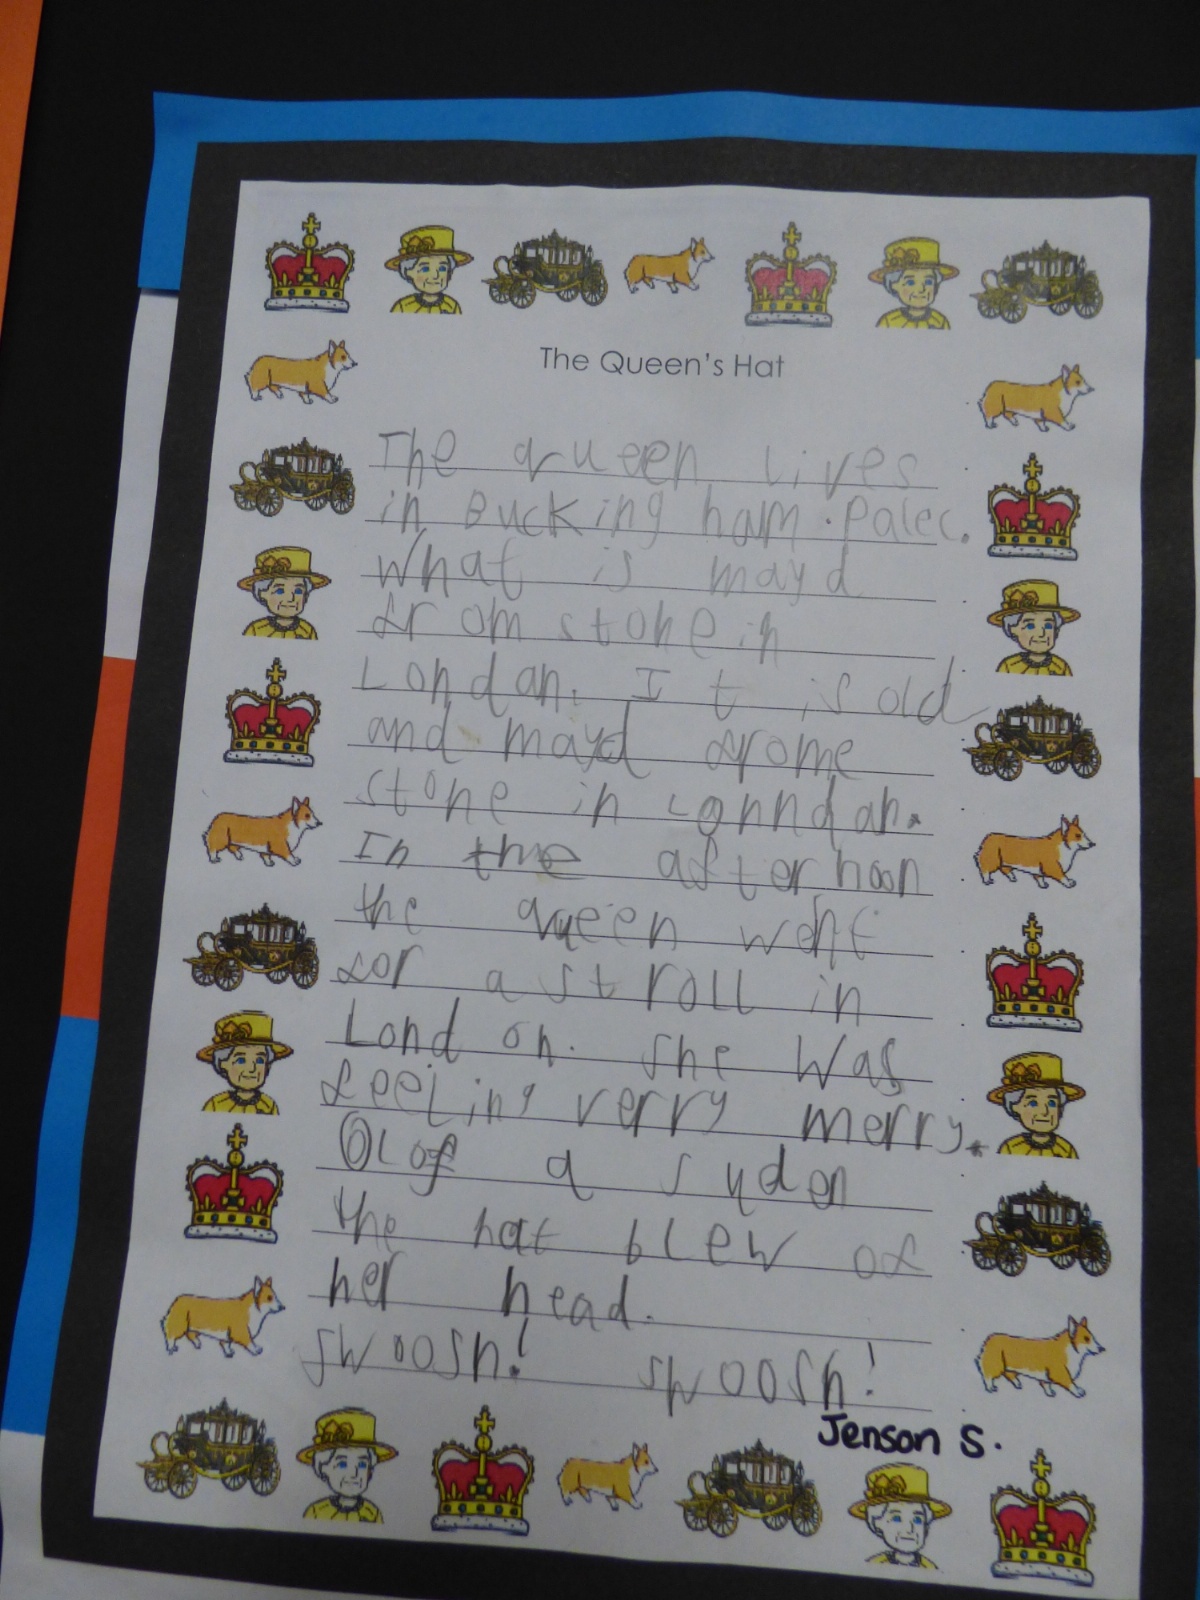 The Queen's Hat
The queen lives
in Bucking ham. Palec.
What is mayd
from stone in
Londan. It is old
and mayd frome
stone in Lonndan.
In the afternoon
the queen went
for a stroll in
London. she was
feeling verry merry.
Ol of a suden
the hat blew of
her head.
swoosh! swoosh!
Jenson S.